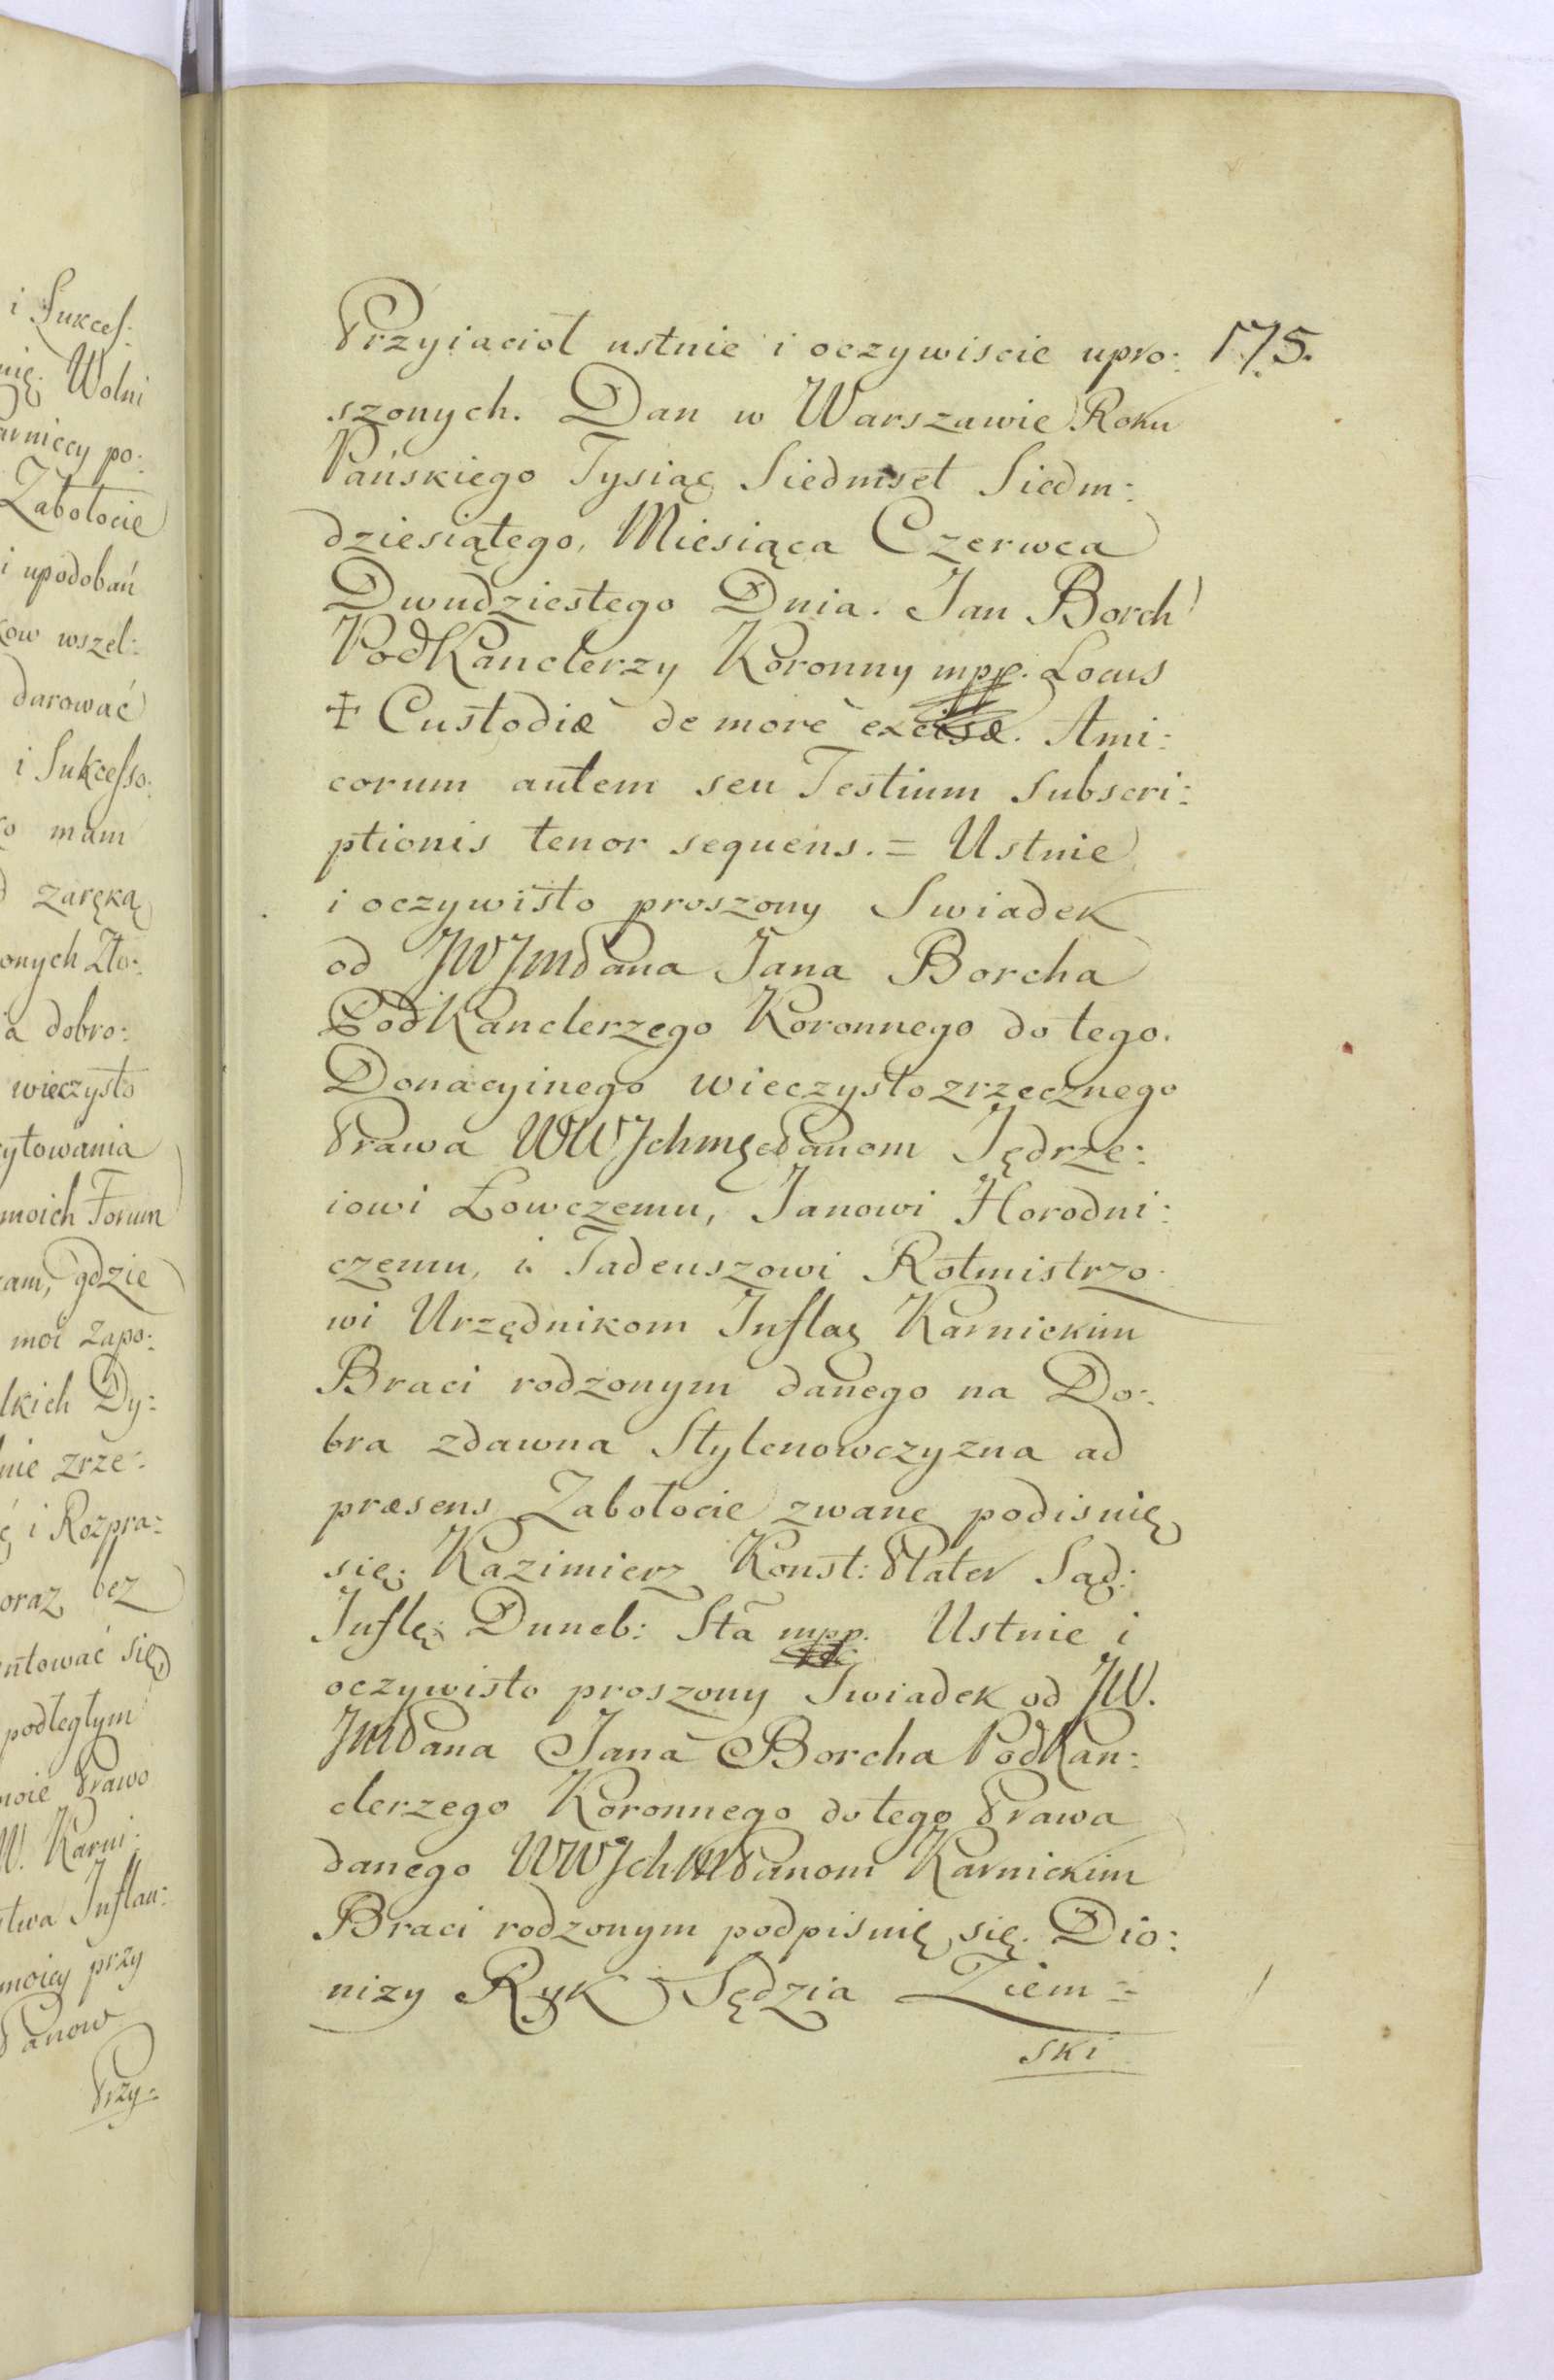 i Sukces:
Wolni
po:
Zabołocie
i upodobań
wszel:
darować
i Sukcesso:
mam
zaręką
onych Zło:
dobro:
wieczysto
moich Forum
gdzie
moi zapo:
Dy:
zrze:
i Rozpra:
oraz bez
się,
podległym
Prawo
W. Karni:
Inflan:
przy
Panow
Przy=
Przyiacioł ustnie i oczywiscie upro: 175.
szonych. Dan w Warszawie Roku
Pańskiego Tysiąc Siedmset Siedm:
dziesiątego, Miesiąca Czerwca
Dwudziestego Dnia. Jan Borch
PodKanclerzy Koronny mpp. Locus
‡ Custodiæ de more excisæ. Ami:
corum autem seu Testium Subscri:
ptionis tenor sequens. = Ustnie
i oczywisto proszony Swiadek
od JWJmPana Jana Borcha
PodKanclerzego Koronnego do tego
Donacyinego wieczysto zrzecznego
Prawa WWJchmęPanom Jędrze:
iowi Łowczemu, Janowi Horodni:
czemu, i Tadeuszowi Rotmistrzo
wi Urzędnikom Inflaę Karnickim
Braci rodzonym danego na Do:
bra zdawna Stylenowczyzna ad
præsens Zabołocie zwane podisnię
się. Kazimierz Konst: Plater Sąd:
Inflę: Duneb: Sta mpp. Ustnie i
oczywisto proszony Swiadek od JW.
JmPana Jana Borcha PodKan:
clerzego Koronnego do tego Prawa
danego WWJchmPanom Karnickim
Braci rodzonym podpisnię się. Dio:
nizy Ryk Sędzia Ziem=
ski